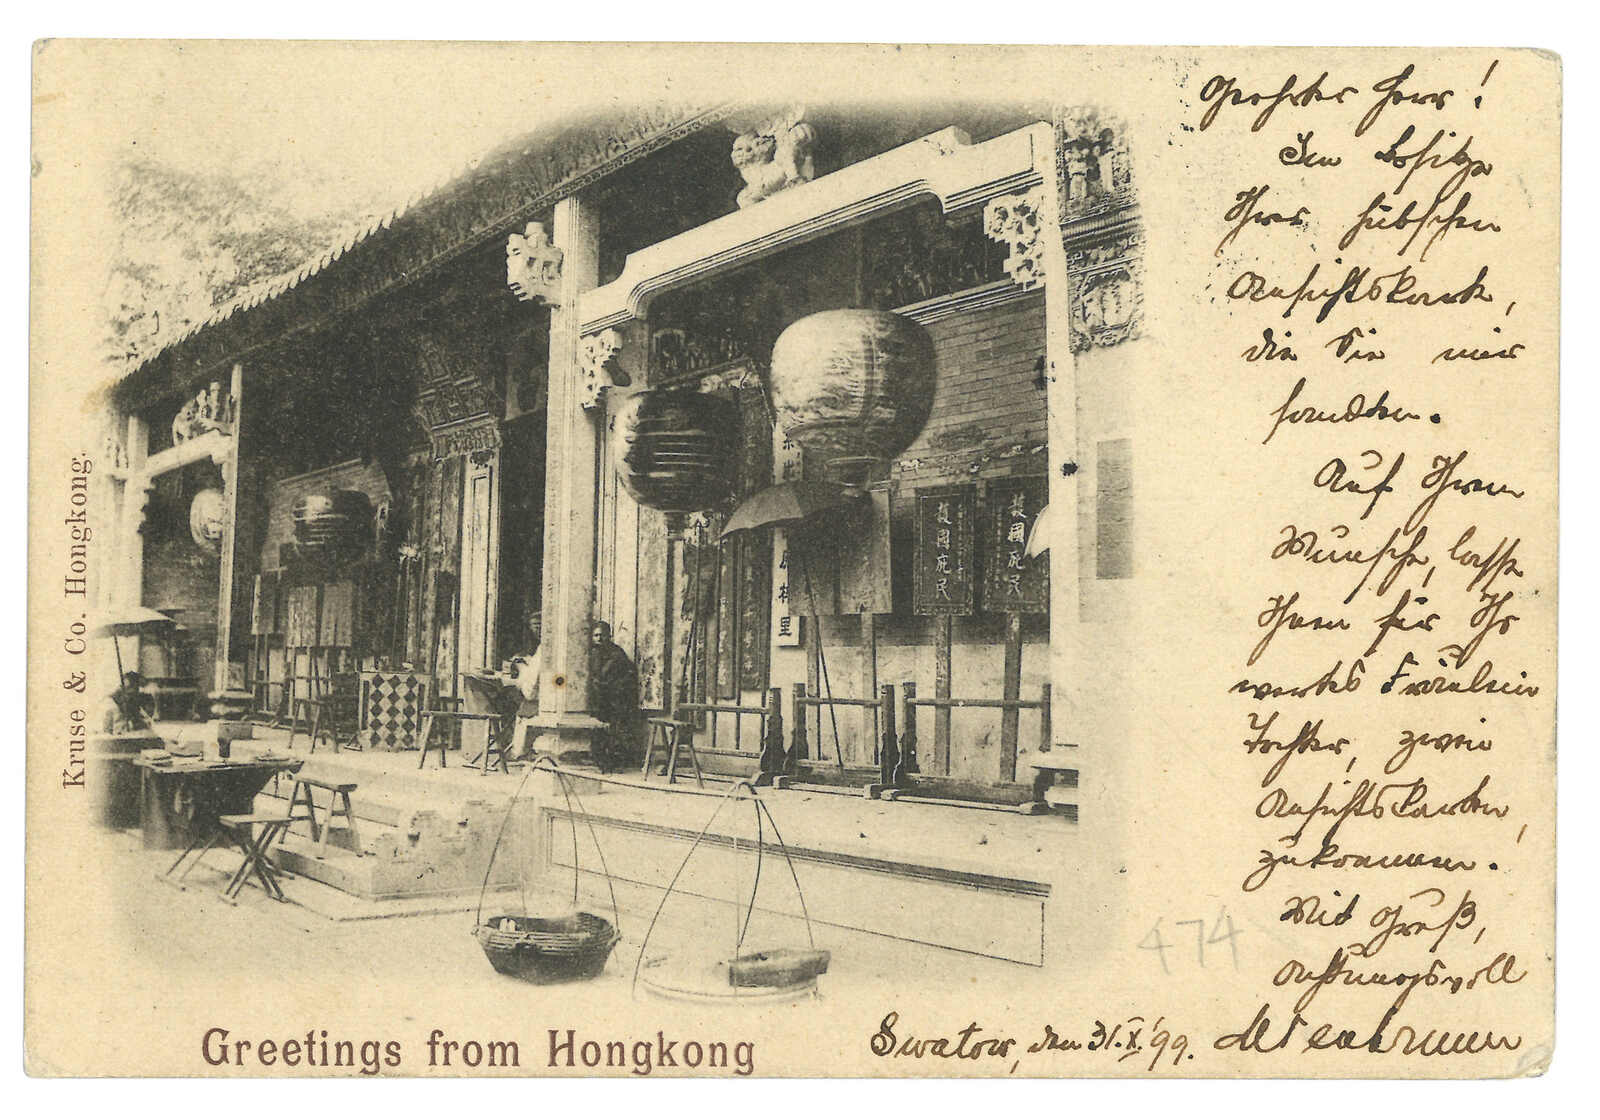 Kruse & Co. Hongkong.
護國庇民
護國庇民
里
Greetings from Hongkong
Geehrter Herr!
Im Besitze
Ihrer hübschen
Ansichtskarte,
die Sie mir
sandten.
Auf Ihren
Wunsche, lasse
Ihnen für Ihr
wertes Fräulein
Tochter, zwei
Ansichtskarten,
zukommen.
Mit Gruß,
Achtungsvoll
Swatow, den 31.X.'99.
474